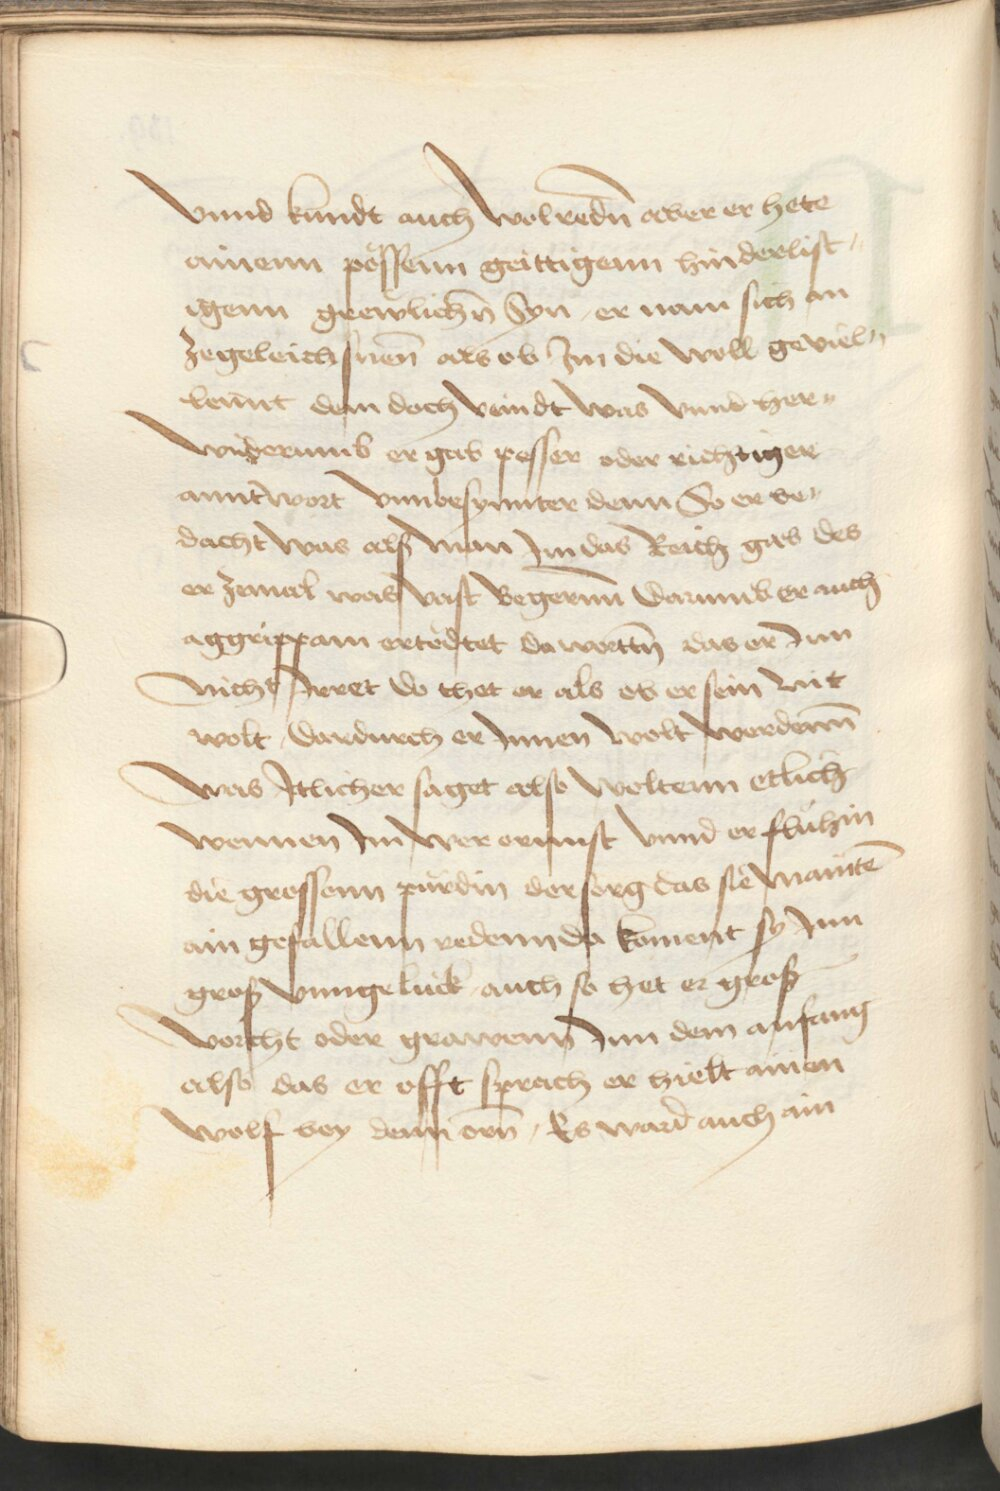 Vnnd kundt auch Wolredn̄ aber er hete
ainenn pössenn geittigenn hinderlist„
igenn grewlichn̄ Syn, er nam sich an
Zegeleichsnen̄ als ob Im die woll geviel„
lennt dem doch veindt was vnnd her„
widerumb er gab pesser oder richtiger
anntwort Vnnbesynnter denn So er be„
dacht was als man Im das Reich gab des
er zemal was vast Begerūn darumb er auch
aggrippam ertödtet das er Inn
Nicht Irret do thet er als ob er sein nit
wolt, dardurch er Innen wolt werdenn̄
Was Itlicher saget also woltenn etlich
wennen Im wer ernnst vnnd er fluhin
die grossenn pürdin der sorg das sie mainten̄
ain gefallenn redenn da koment sy Inn
gros vnngeluck, auch so het er gros
vorcht oder grawenn Inn dem anfang
also das er offt sprach er hielt ainen
wolf bey denn orn̄, Es ward auch ain